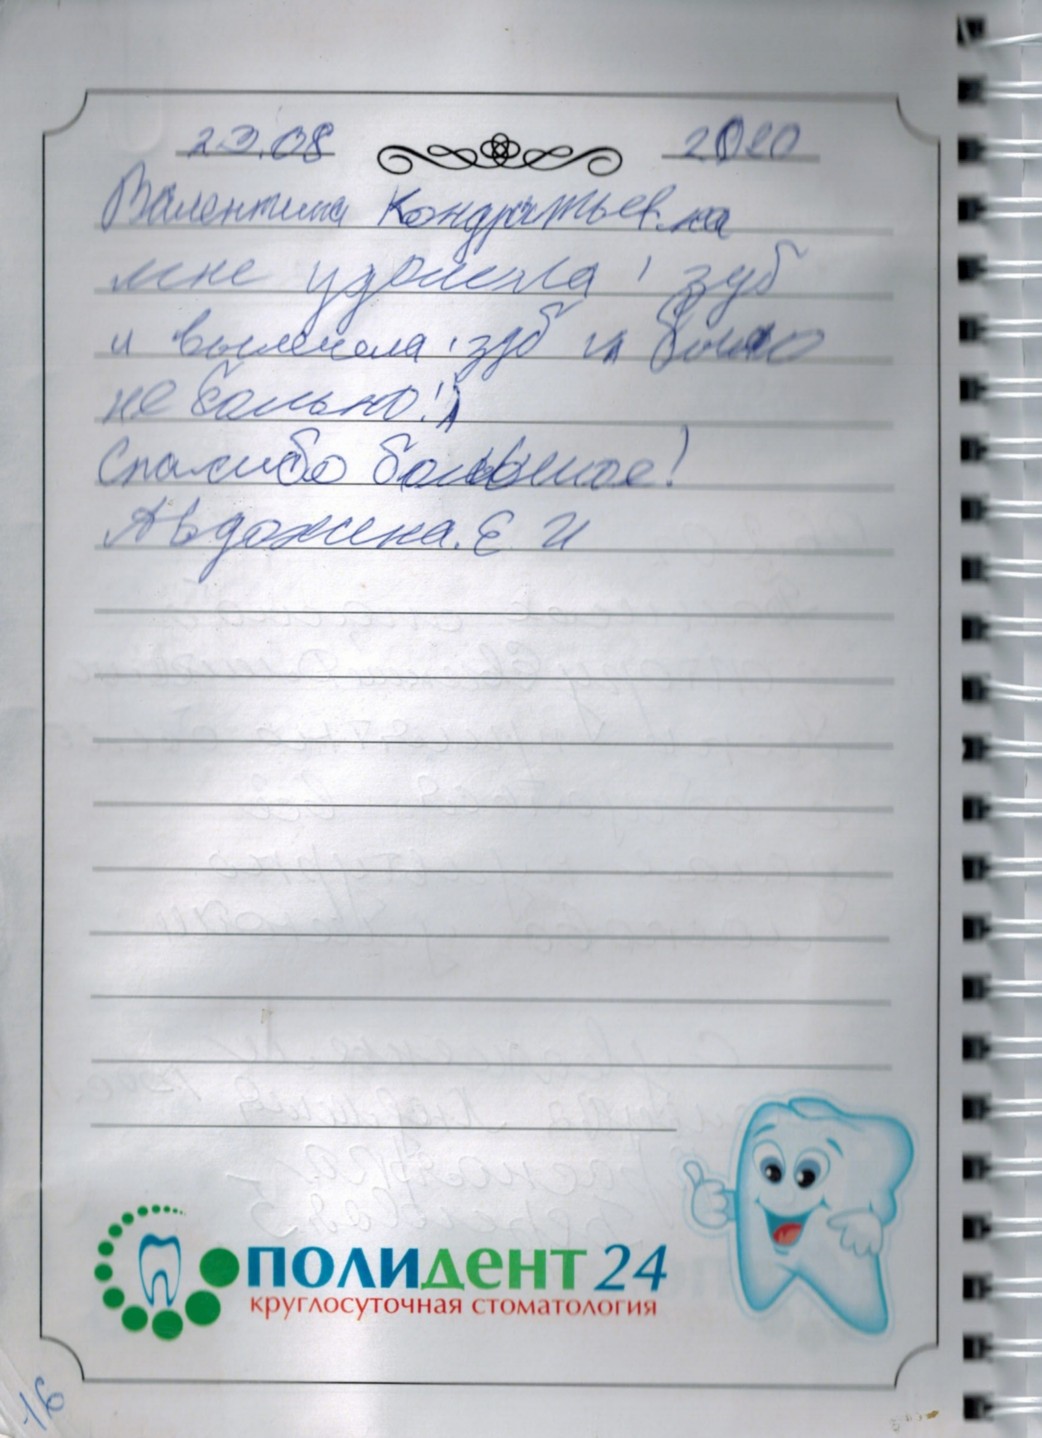 23.08 2020
Валентина Кондратьевна
мне удолила 1 зуб
и вылечела 1 зуб и было
не больно!)
Спасибо большое!
Авдожина. Е И
ПОЛИДЕНТ 24
круглосуточная стоматология
16